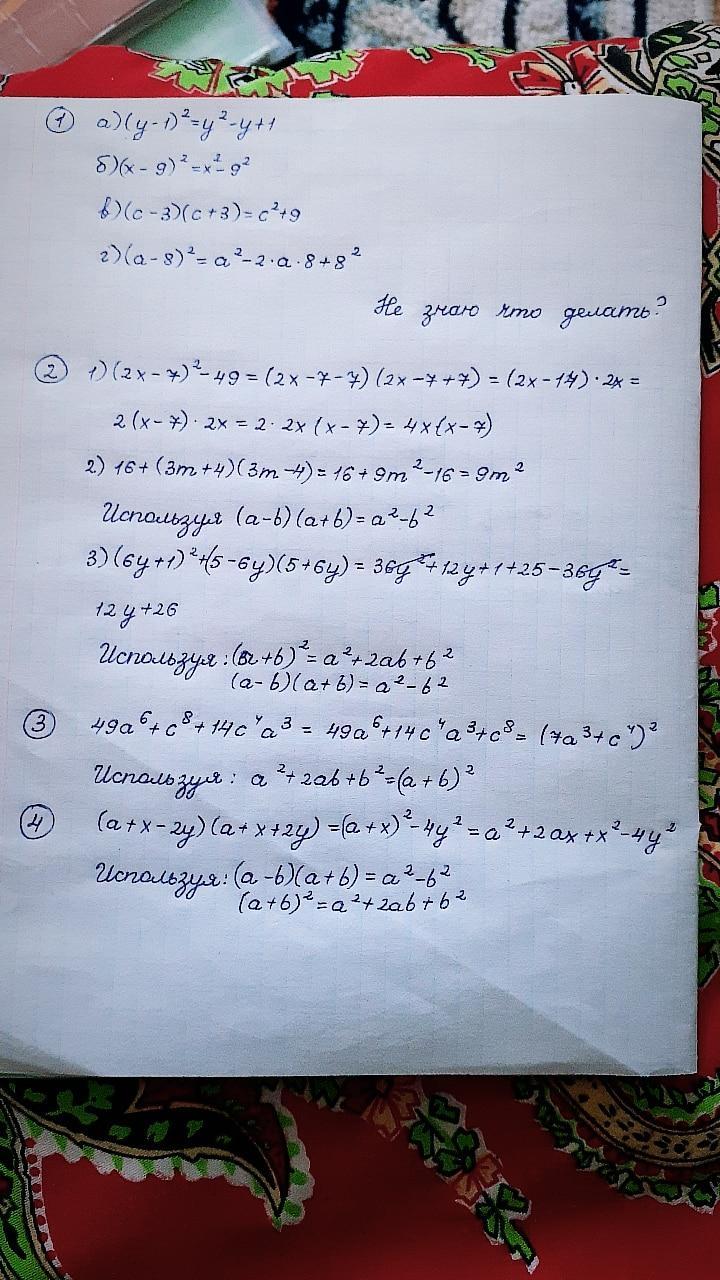 ① а) (y-1)²=y²-y+1
б) (x-9)²=x²-9²
в) (c-3)(c+3)=c²+9
г) (a-8)²=a²-2·a·8+8²
Не знаю что делать?
② 1) (2x-7)²-49=(2x-7-7)(2x-7+7)=(2x-14)·2x=
2(x-7)·2x=2·2x(x-7)=4x(x-7)
2) 16+(3m+4)(3m-4)=16+9m²-16=9m²
Используя (a-b)(a+b)=a²-b²
3) (6y+1)²+(5-6y)(5+6y)=36y²+12y+1+25-36y²=
12y+26
Используя: (a+b)²=a²+2ab+b²
(a-b)(a+b)=a²-b²
③ 49a⁶+c⁸+14c⁴a³=49a⁶+14c⁴a³+c⁸=(7a³+c⁴)²
Используя: a²+2ab+b²=(a+b)²
④ (a+x-2y)(a+x+2y)=(a+x)²-4y²=a²+2ax+x²-4y²
Используя: (a-b)(a+b)=a²-b²
(a+b)²=a²+2ab+b²